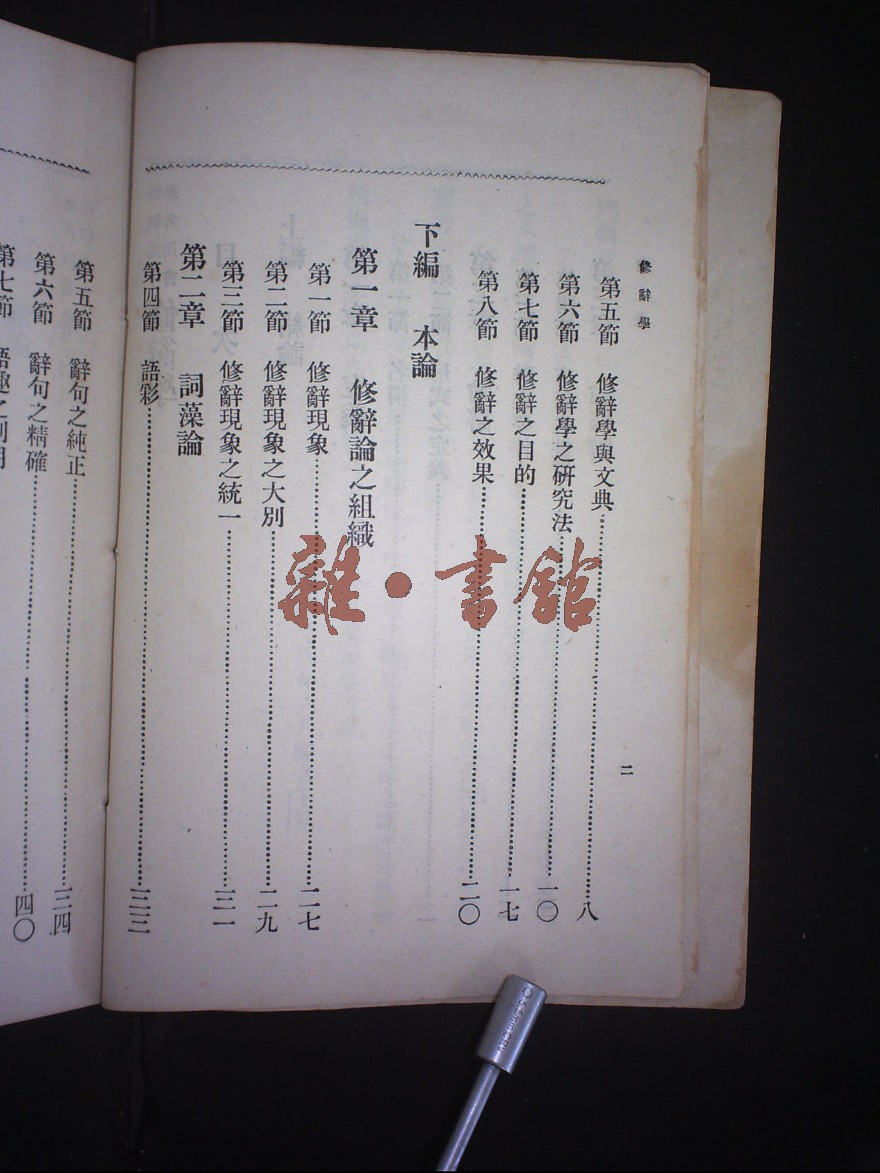 修辭學
第五節　修辭學與文典……八
第六節　修辭學之研究法……一〇
第七節　修辭之目的……一七
第八節　修辭之效果……二〇
下編　本論
第一章　修辭論之組織
第一節　修辭現象……二七
第二節　修辭現象之大別……二九
第三節　修辭現象之統一……三一
第二章　詞藻論
第四節　語彩……三三
二
第五節　辭句之純正……三四
第六節　辭句之精確……四〇
第七節
雜·書館